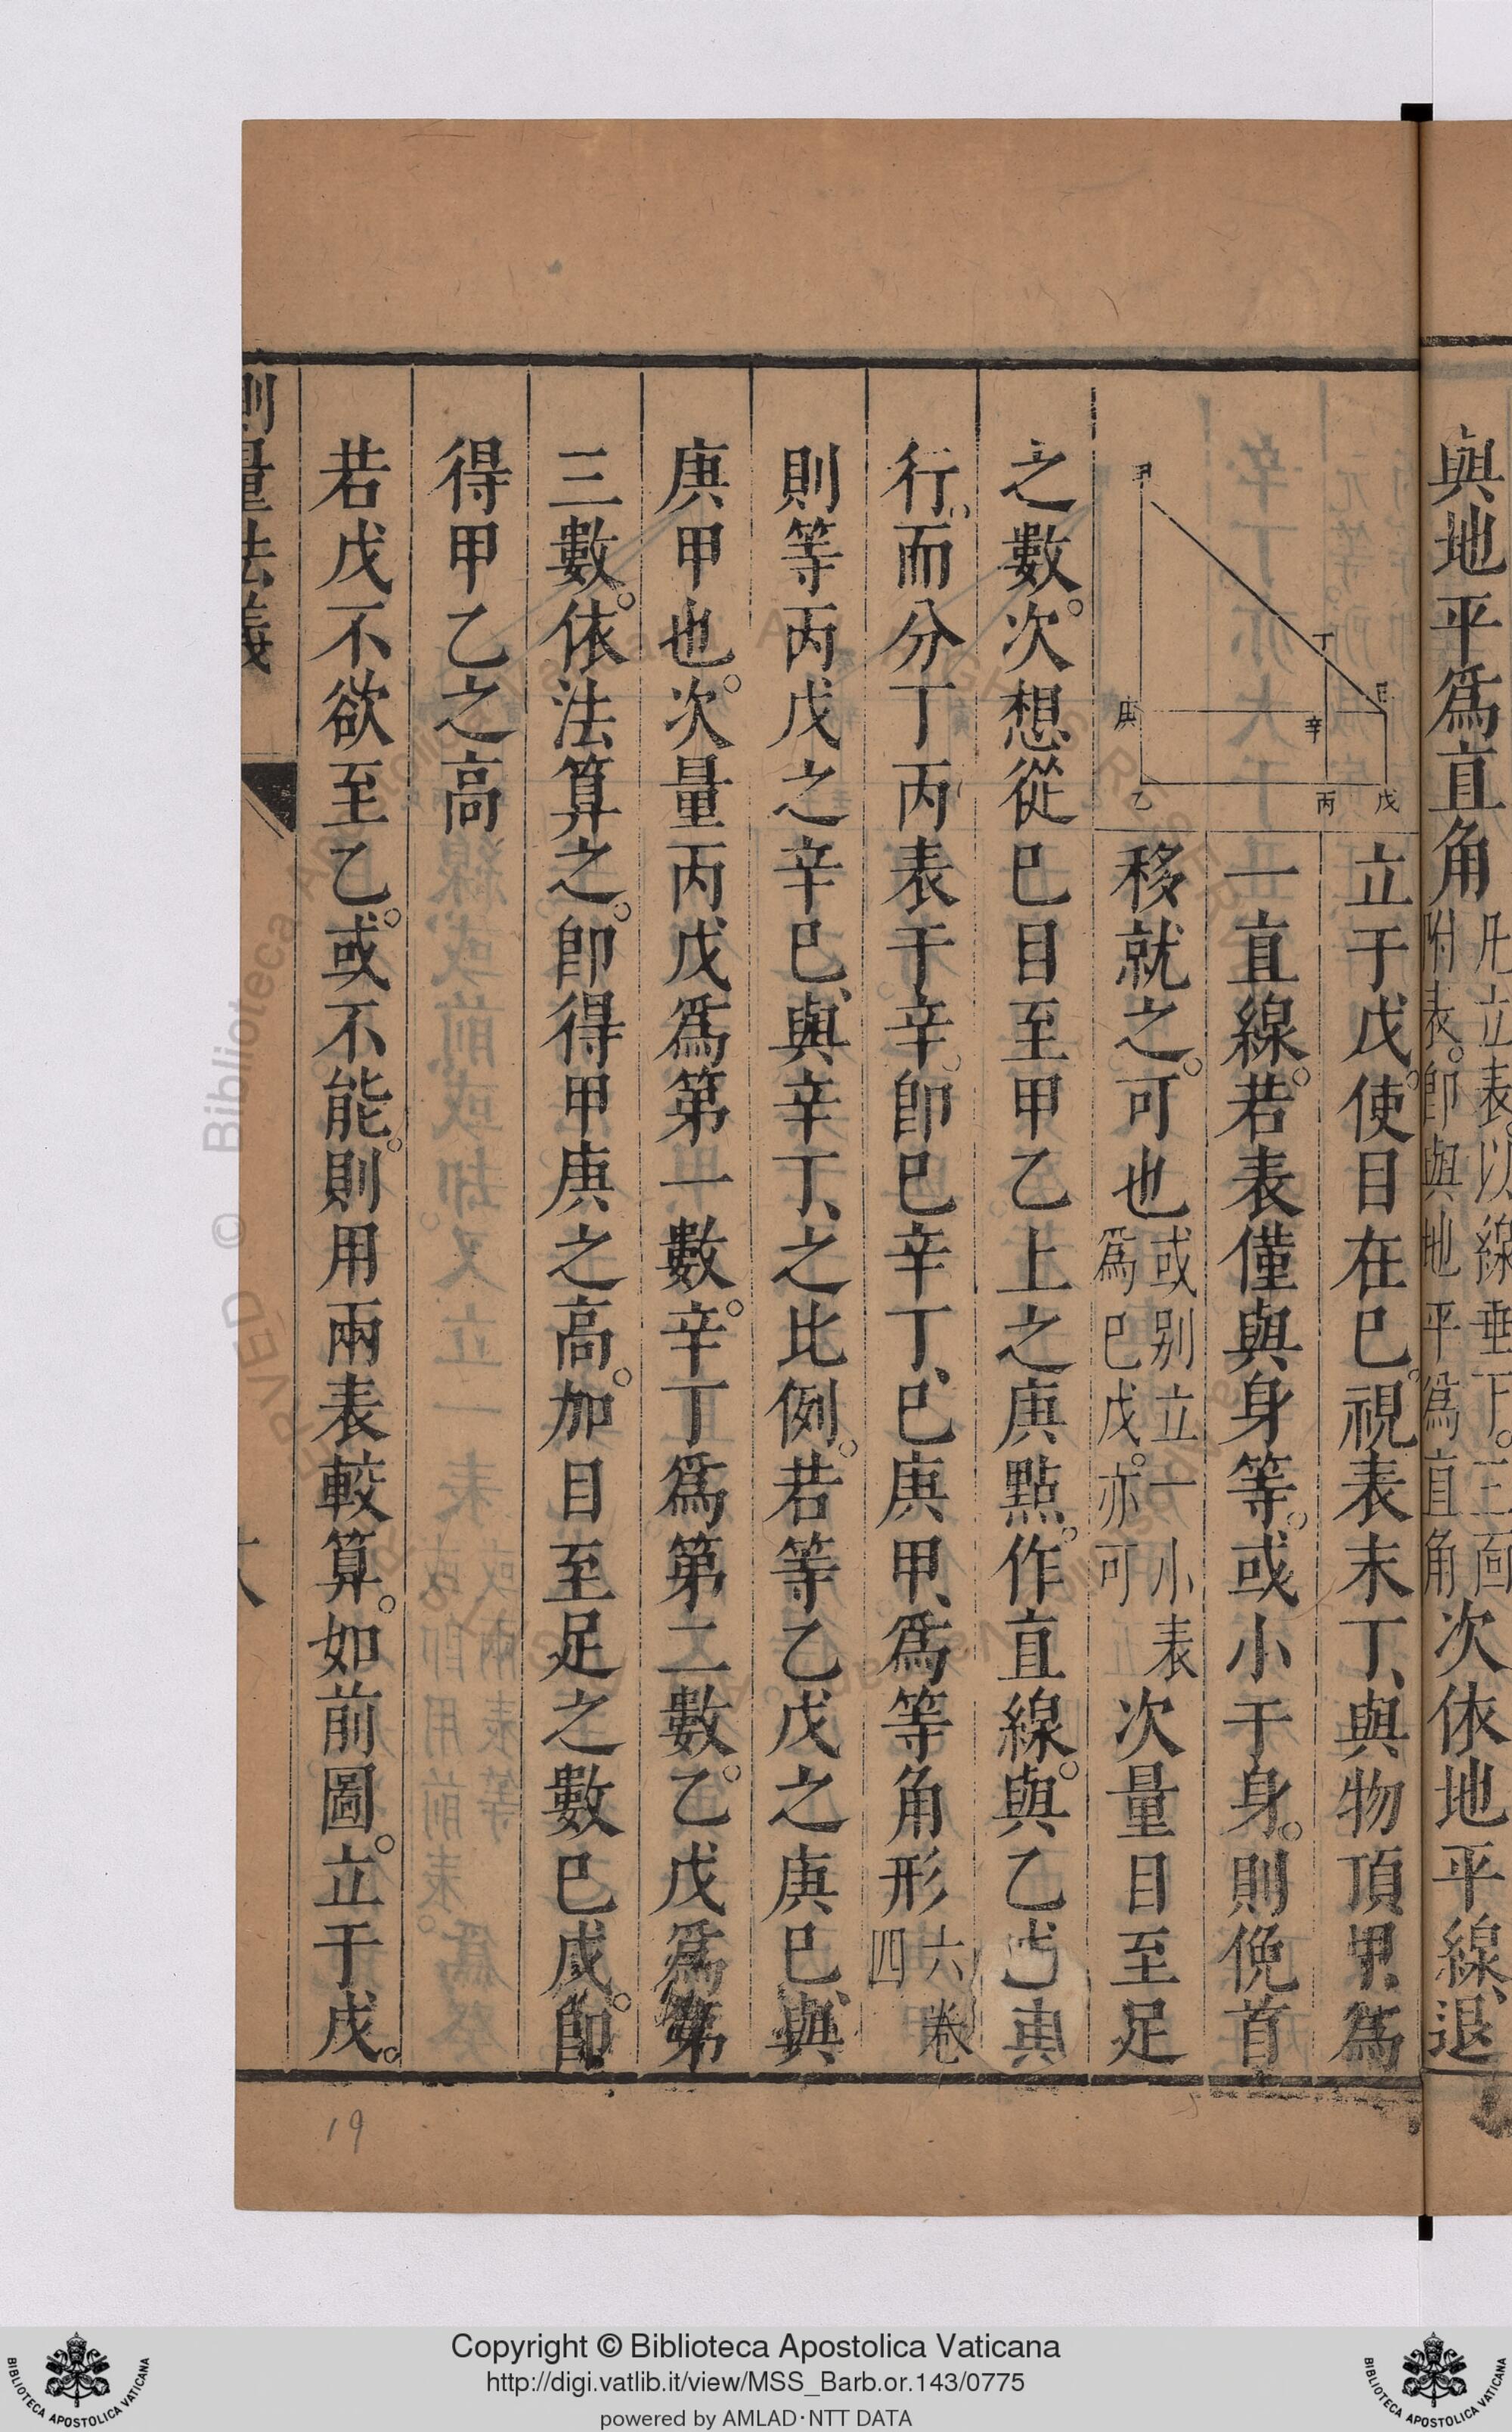 與地平爲直角凡立表以線垂下三面附表卽與地平爲直角次依地平線退
立于戊使目在巳視表末丁與物頂甲爲
一直線若表僅與身等或小于身則俛首
移就之可也或別立一小表爲巳戊亦可次量目至足
之數次想從巳目至甲乙上之庚點作直線與乙
行而分丁丙表于辛卽巳辛丁巳庚甲爲等角形六卷四
則等丙戊之辛巳與辛丁之比例若等乙戊之庚巳與
庚甲也次量丙戊爲第一數辛丁爲第二數乙戊爲第
三數依法算之卽得甲庚之高加目至足之數巳戊卽
得甲乙之高
若戊不欲至乙或不能則用兩表較算如前圖立于戊
測量法義
甲
丁
巳
庚
辛
乙
丙
戊
19
© Biblioteca Apostolica Vaticana
Copyright © Biblioteca Apostolica Vaticana
http://digi.vatlib.it/view/MSS_Barb.or.143/0775
powered by AMLAD·NTT DATA
BIBLIOTECA APOSTOLICA VATICANA
BIBLIOTECA APOSTOLICA VATICANA